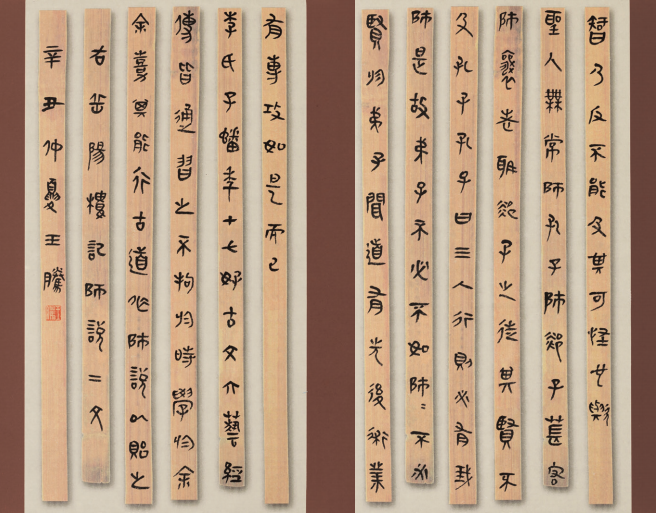 智乃反不能及其可怪也歟
聖人無常師孔子師郯子萇弘
師襄老聃郯子之徒其賢不
及孔子孔子曰三人行則必有我
師是故弟子不必不如師〓不必
賢於弟子聞道有先後術業
有專攻如是而已
李氏子蟠年十七好古文六藝經
傳皆通習之不拘於時學於余
余嘉其能行古道作師說以貽之
右岳陽樓記師說二文
辛丑仲夏王騰